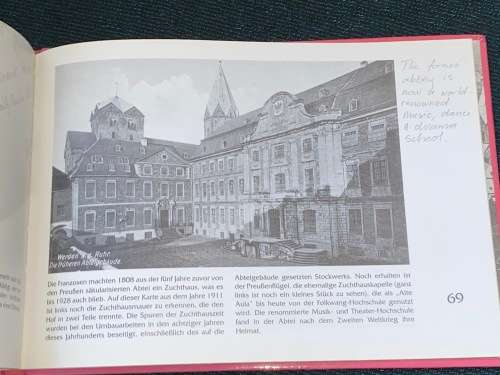 The former
abbey is
now a world-
renowned
music, dance
& drama
School.
Werden a. d. Ruhr.
Die früheren Abteigebäude.
Die Franzosen machten 1808 aus der fünf Jahre zuvor von
den Preußen säkularisierten Abtei ein Zuchthaus, was es
bis 1928 auch blieb. Auf dieser Karte aus dem Jahre 1911
ist links noch die Zuchthausmauer zu erkennen, die den
Hof in zwei Teile trennte. Die Spuren der Zuchthauszeit
wurden bei den Umbauarbeiten in den achtziger Jahren
dieses Jahrhunderts beseitigt, einschließlich des auf die
Abteigebäude gesetzten Stockwerks. Noch erhalten ist
der Preußenflügel, die ehemalige Zuchthauskapelle (ganz
links ist noch ein kleines Stück zu sehen), die als „Alte
Aula" bis heute von der Folkwang-Hochschule genutzt
wird. Die renommierte Musik- und Theater-Hochschule
fand in der Abtei nach dem Zweiten Weltkrieg ihre
Heimat.
69